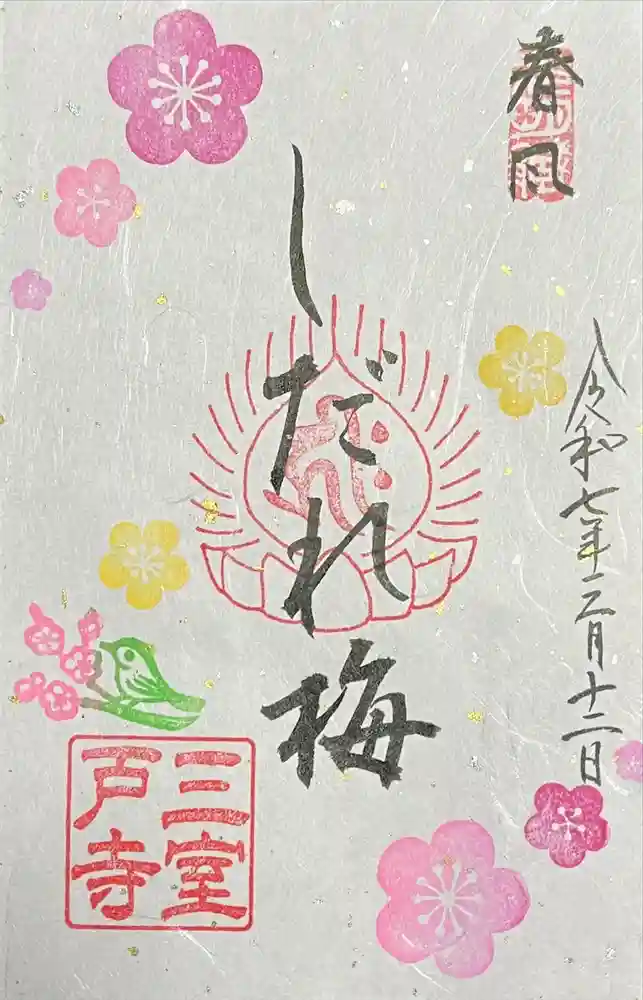 春風
令和七年三月十二日
しだれ梅
三室
戸寺